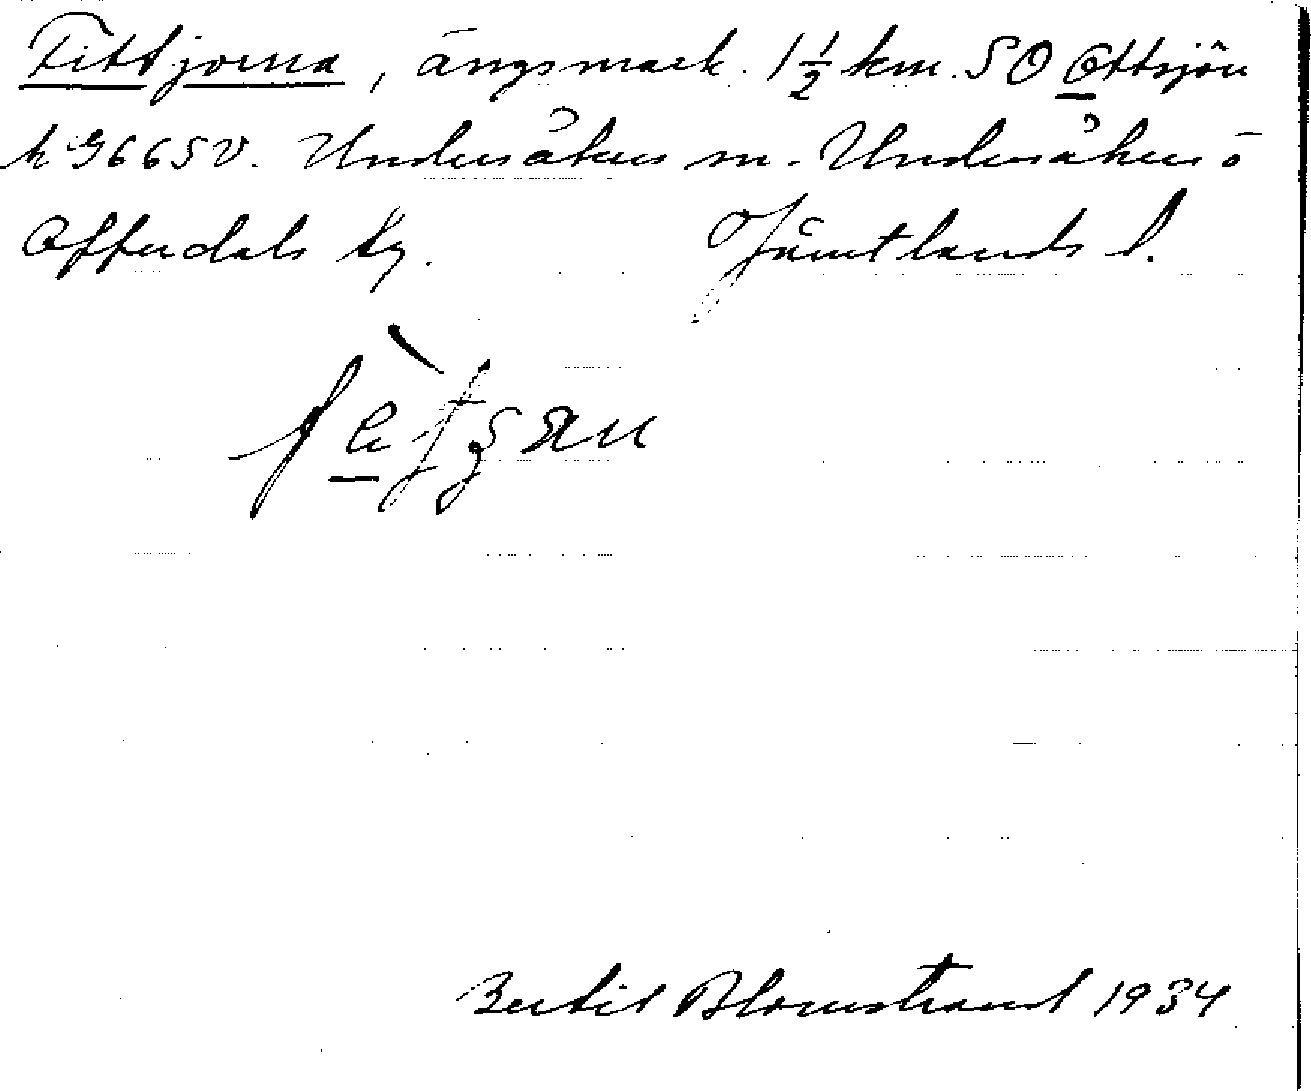 Fittjorna, ängsmark. 1½ km. SO Ottsjön
h G 665 V. Undersåkers sn. Undersåkers o
Offerdals tg. Jämtlands l.
Bertil Blomstrand 1934